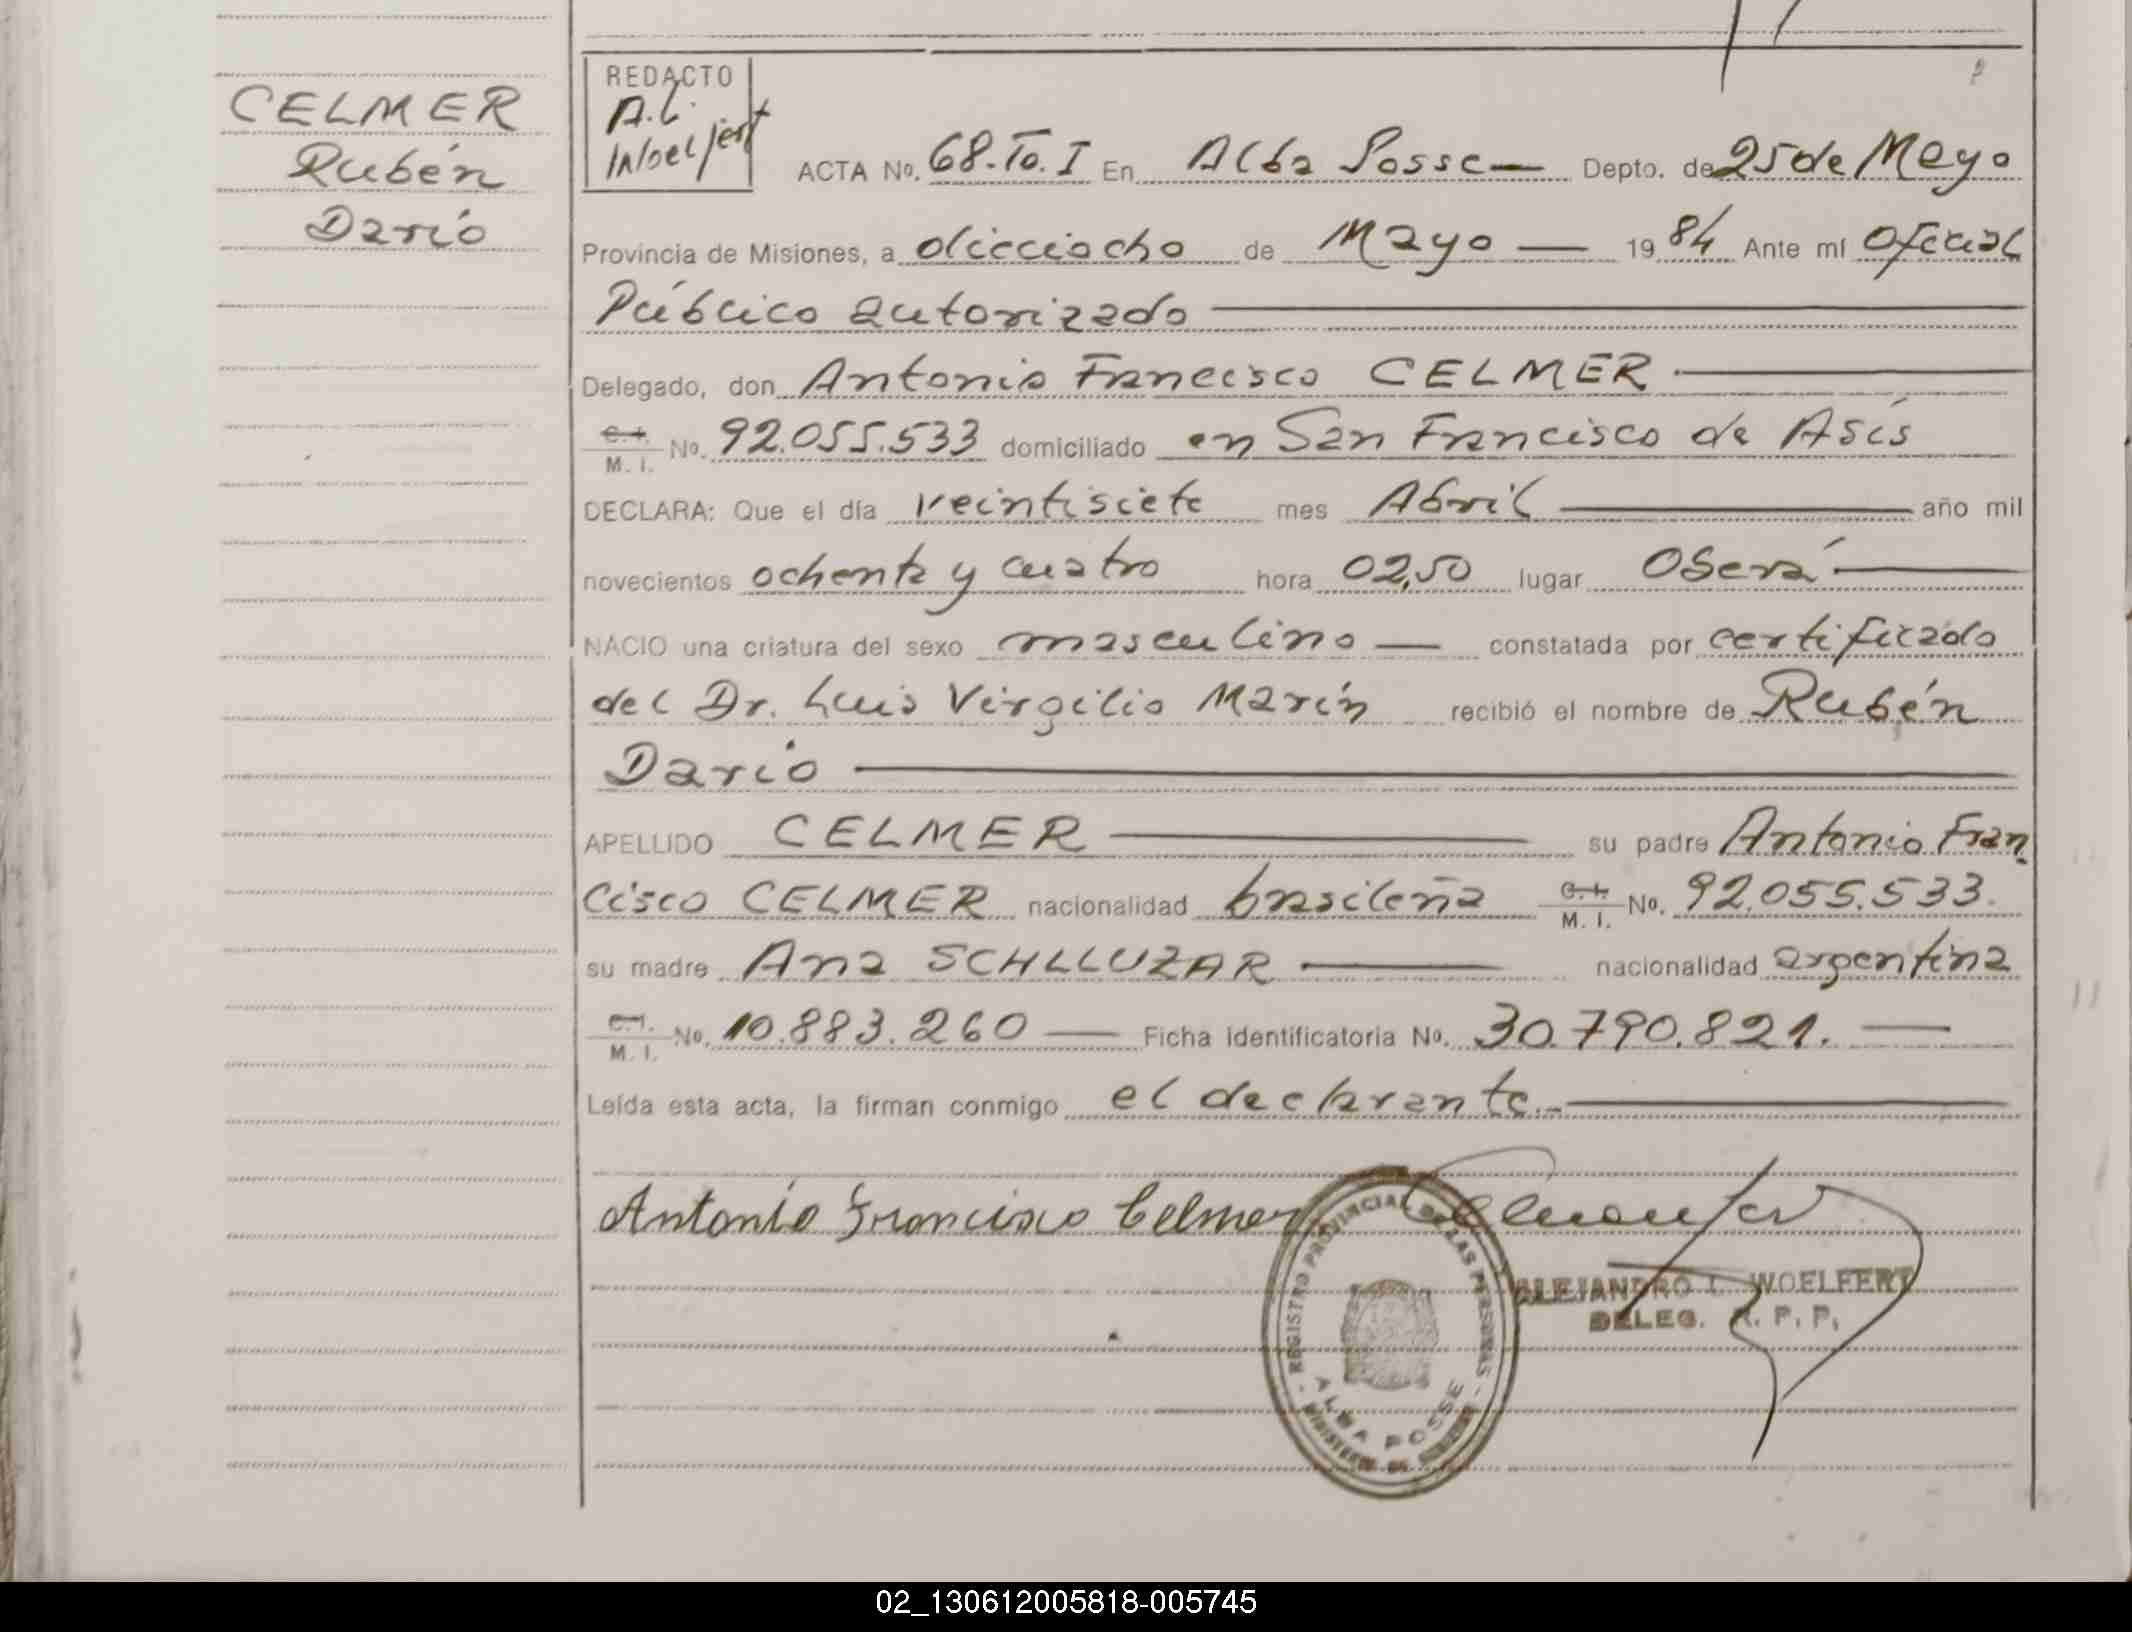 CELMER
Rubén
Darío
REDACTO
A.L.
Woelfert
ACTA No. 68-To. I En Alba Posse— Depto. de 25 de Mayo
Provincia de Misiones, a dieciocho de Mayo — 19 84 Ante mí Oficial
Público autorizado
Delegado, don Antonio Francisco CELMER
C. I. M. I. No. 92.055.533 domiciliado en San Francisco de Asís
DECLARA: Que el día veintisiete mes Abril año mil
novecientos ochenta y cuatro hora 02,50 lugar Oberá
NACIO una criatura del sexo masculino — constatada por certificado
del Dr. Luis Virgilio Marín recibió el nombre de Rubén
Darío
APELLIDO CELMER su padre Antonio Fran
cisco CELMER nacionalidad brasileña C. I. M. I. No. 92.055.533.
su madre Ana SCHLLUZAR nacionalidad argentina
C. I. M. I. No. 10.883.260 — Ficha identificatoria No. 30.790.821. —
Leída esta acta, la firman conmigo el declarante.-
Antonio Francisco Celmer
REGISTRO PROVINCIAL DE LAS PERSONAS
ALBA POSSE
MINISTERIO DE
ALEJANDRO L. WOELFERT
DELEG. R. P. P.
02_130612005818-005745